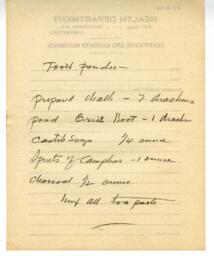 Tooth powder –
prepared chalk – 7 drachms
powd Orris Root – 1 drachm
Castile Soap 1/4 ounce
Spirits of Camphor – 1 ounce
Charcoal 1/2 ounce
Mix all to a paste